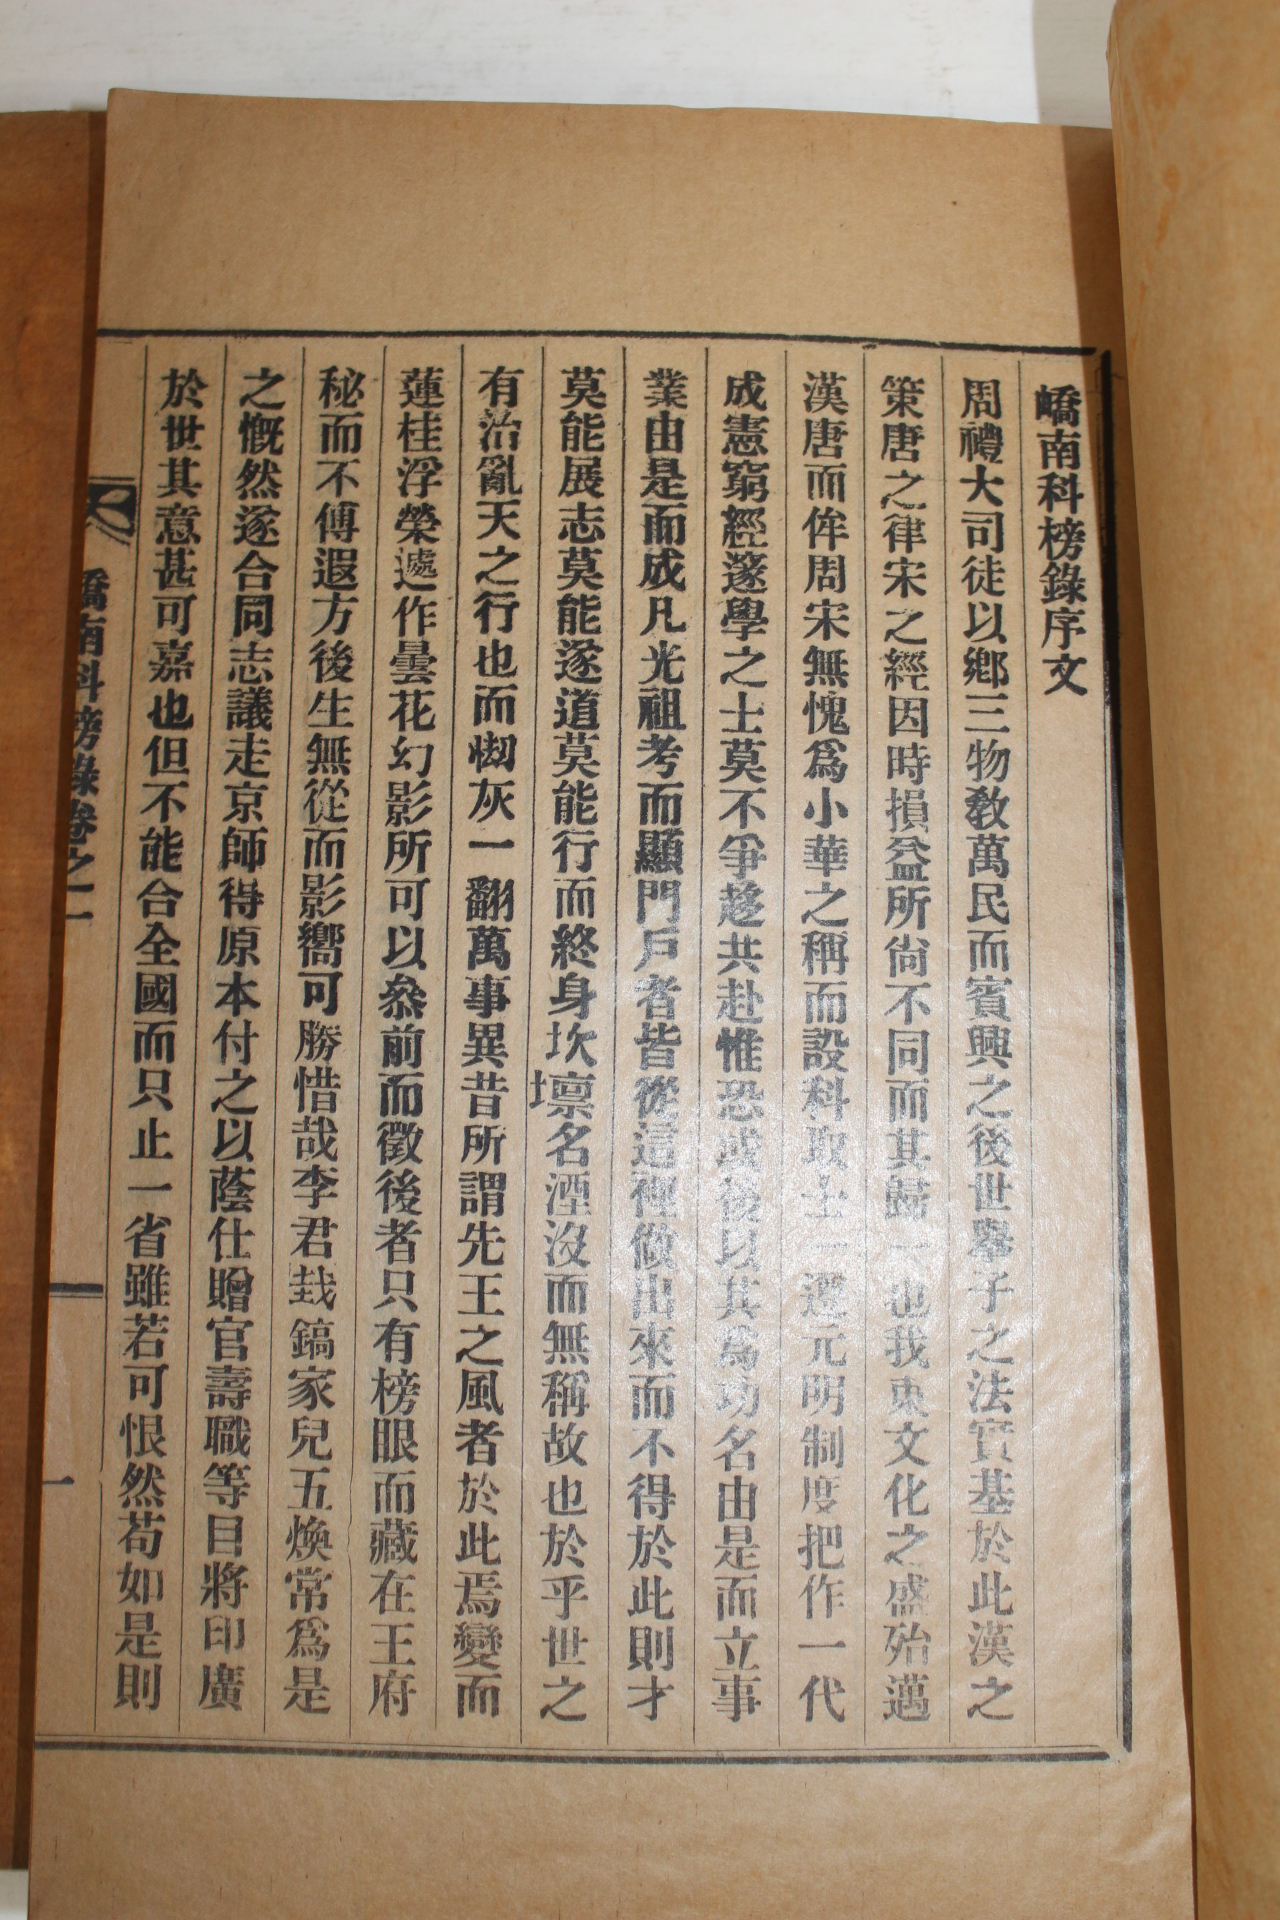 嶠南科榜錄序文
周禮大司徒以鄕三物敎萬民而賓興之後世擧子之法實基於此漢之
策唐之律宋之經因時損益所尙不同而其歸一也我東文化之盛殆邁
漢唐而侔周宋無愧爲小華之稱而設科取士一遵元明制度把作一代
成憲窮經邃學之士莫不爭趍共赴惟恐或後以其爲功名由是而立事
業由是而成凡光祖考而顯門戶者皆從這裡做出來而不得於此則才
莫能展志莫能遂道莫能行而終身坎壈名湮沒而無稱故也於乎世之
有治亂天之行也而刼灰一翻萬事異昔所謂先王之風者於此焉變而
蓮桂浮榮遽作曇花幻影所可以叅前而徵後者只有榜眼而藏在王府
秘而不傅遐方後生無從而影嚮可勝惜哉李君㘽鎬家兒五煥常爲是
之慨然遂合同志議走京師得原本付之以蔭仕贈官壽職等目將印廣
於世其意甚可嘉也但不能合全國而只止一省雖若可恨然苟如是則
嶠南科榜錄卷之一
一